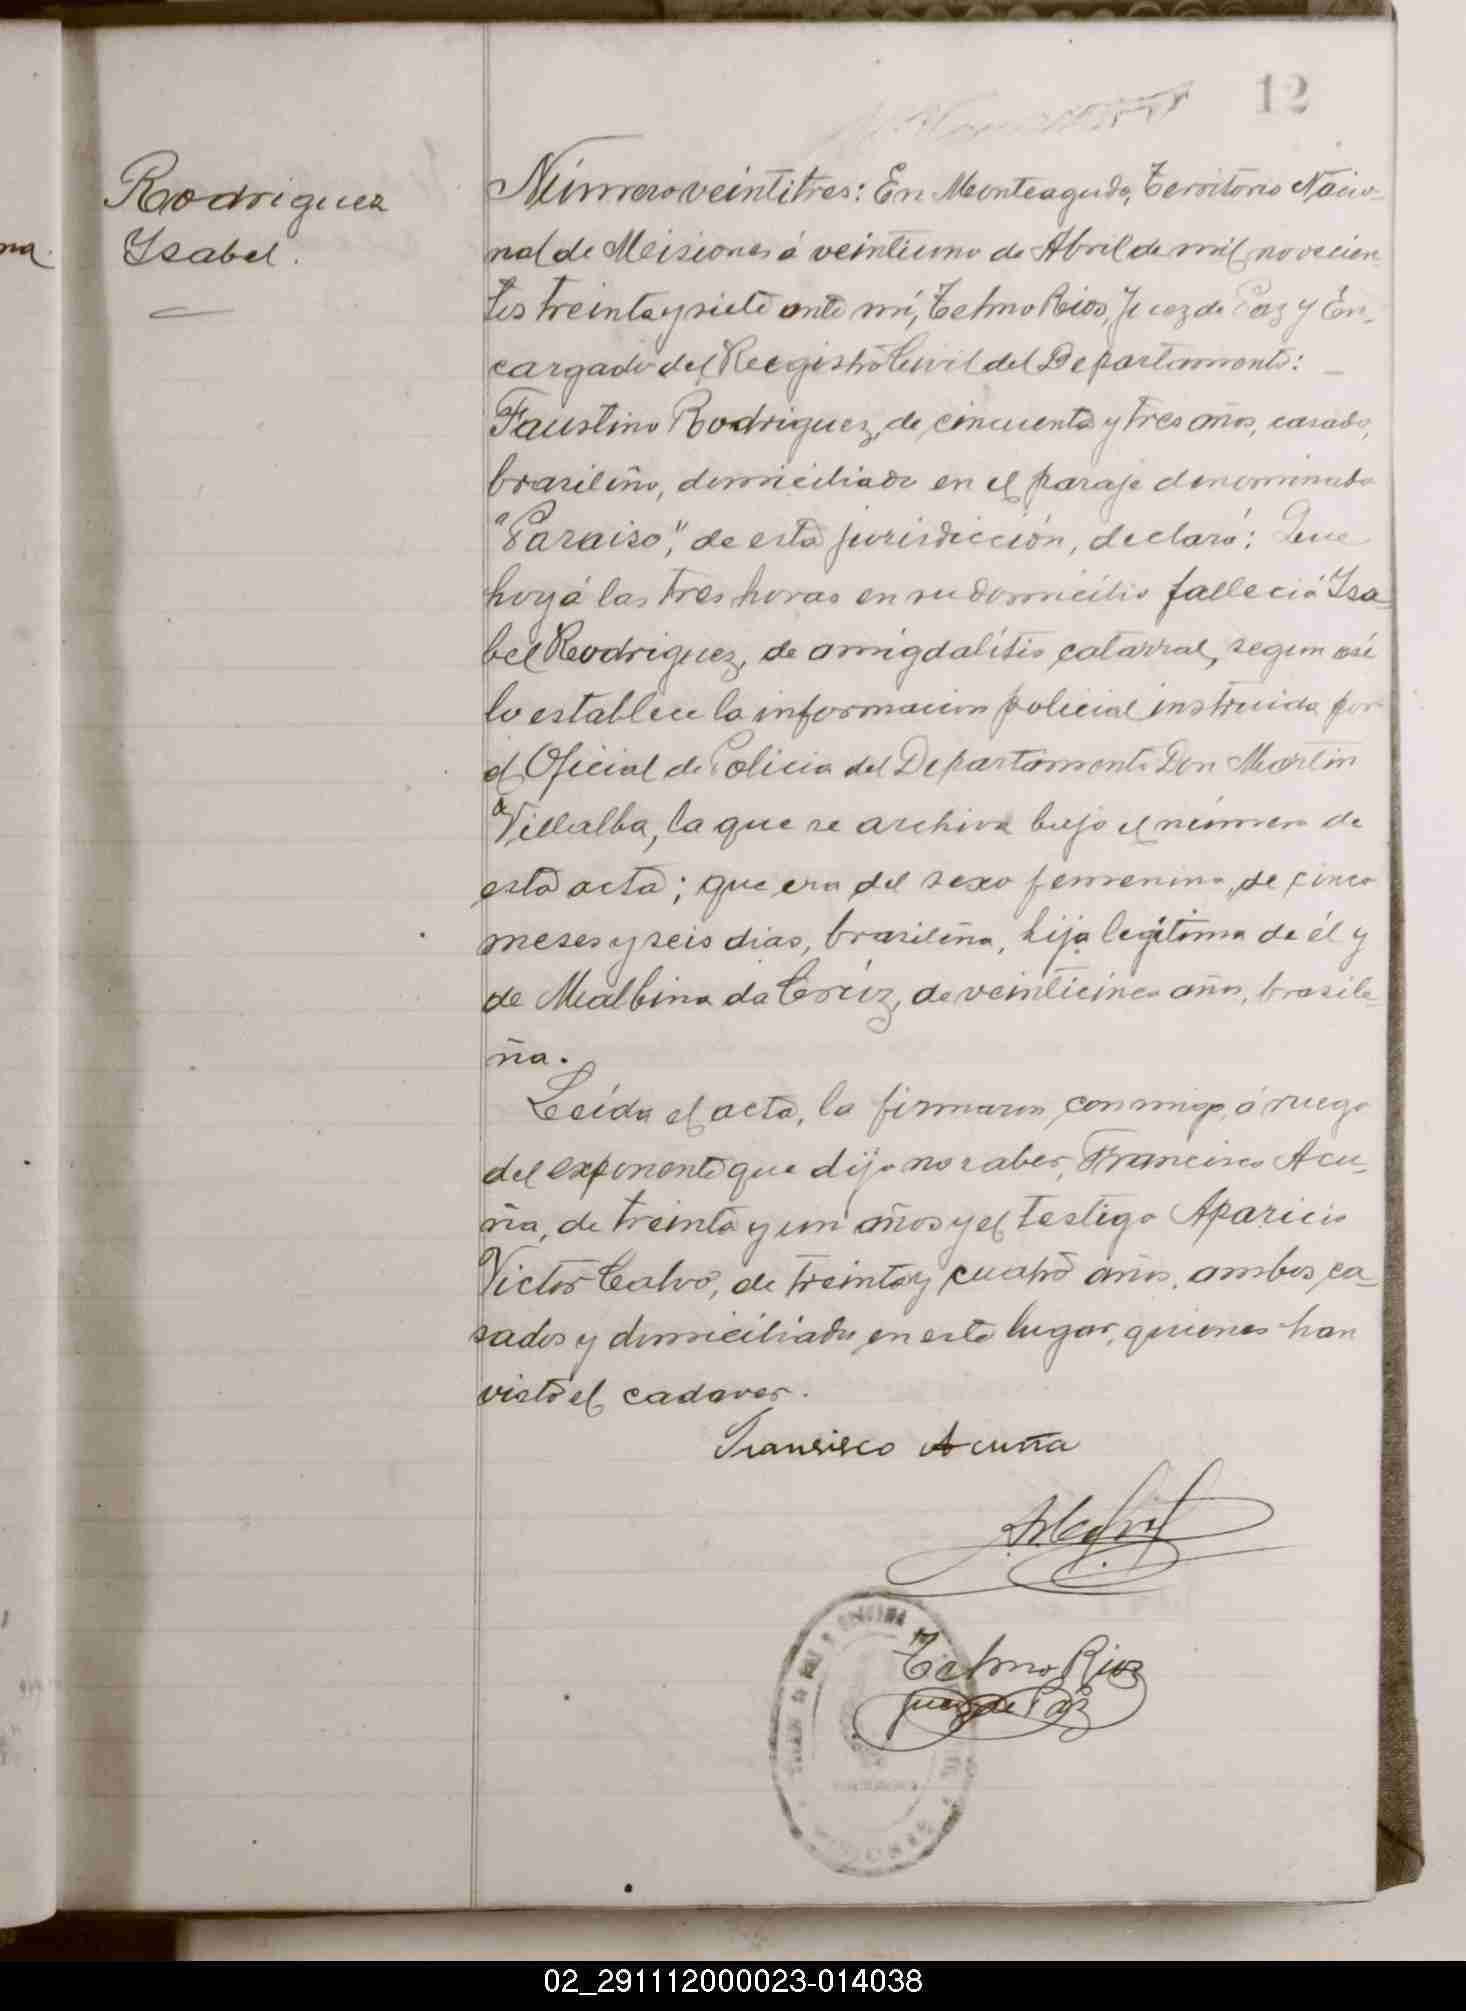 12
Rodriguez
Isabel.
Número veintitres: En Monteagudo, Territorio Nacio-
nal de Misiones á veintiuno de Abril de mil novecien-
tos treinta y siete ante mí, Telmo Rios, Juez de Paz y En-
cargado del Registro Civil del Departamento:
Faustino Rodriguez, de cincuenta y tres años, casado,
brasileño, domiciliado en el paraje denominado
"Paraiso", de esta jurisdicción, declaró: Que
hoy á las tres horas en su domicilio falleció Isa-
bel Rodriguez, de amigdalítis catarral, segun así
lo establece la informacion policial instruida por
el Oficial de Policia del Departamento Don Martin
Villalba, la que se archiva bajo el número de
esta acta; que era del sexo femenino, de cinco
meses y seis dias, brasileña, hija legítima de él y
de Malbina da Crúz, de veinticinco años, brasile-
ña.
Leída el acta, la firmaron conmigo, á ruego
del exponente que dijo no saber, Francisco Acu-
ña, de treinta y un años y el testigo Aparicio
Victor Calvo, de treinta y cuatro años, ambos ca-
sados y domiciliados en este lugar, quienes han
visto el cadaver.
Fransisco Acuña
Telmo Rios
Juez de Paz
02_291112000023-014038